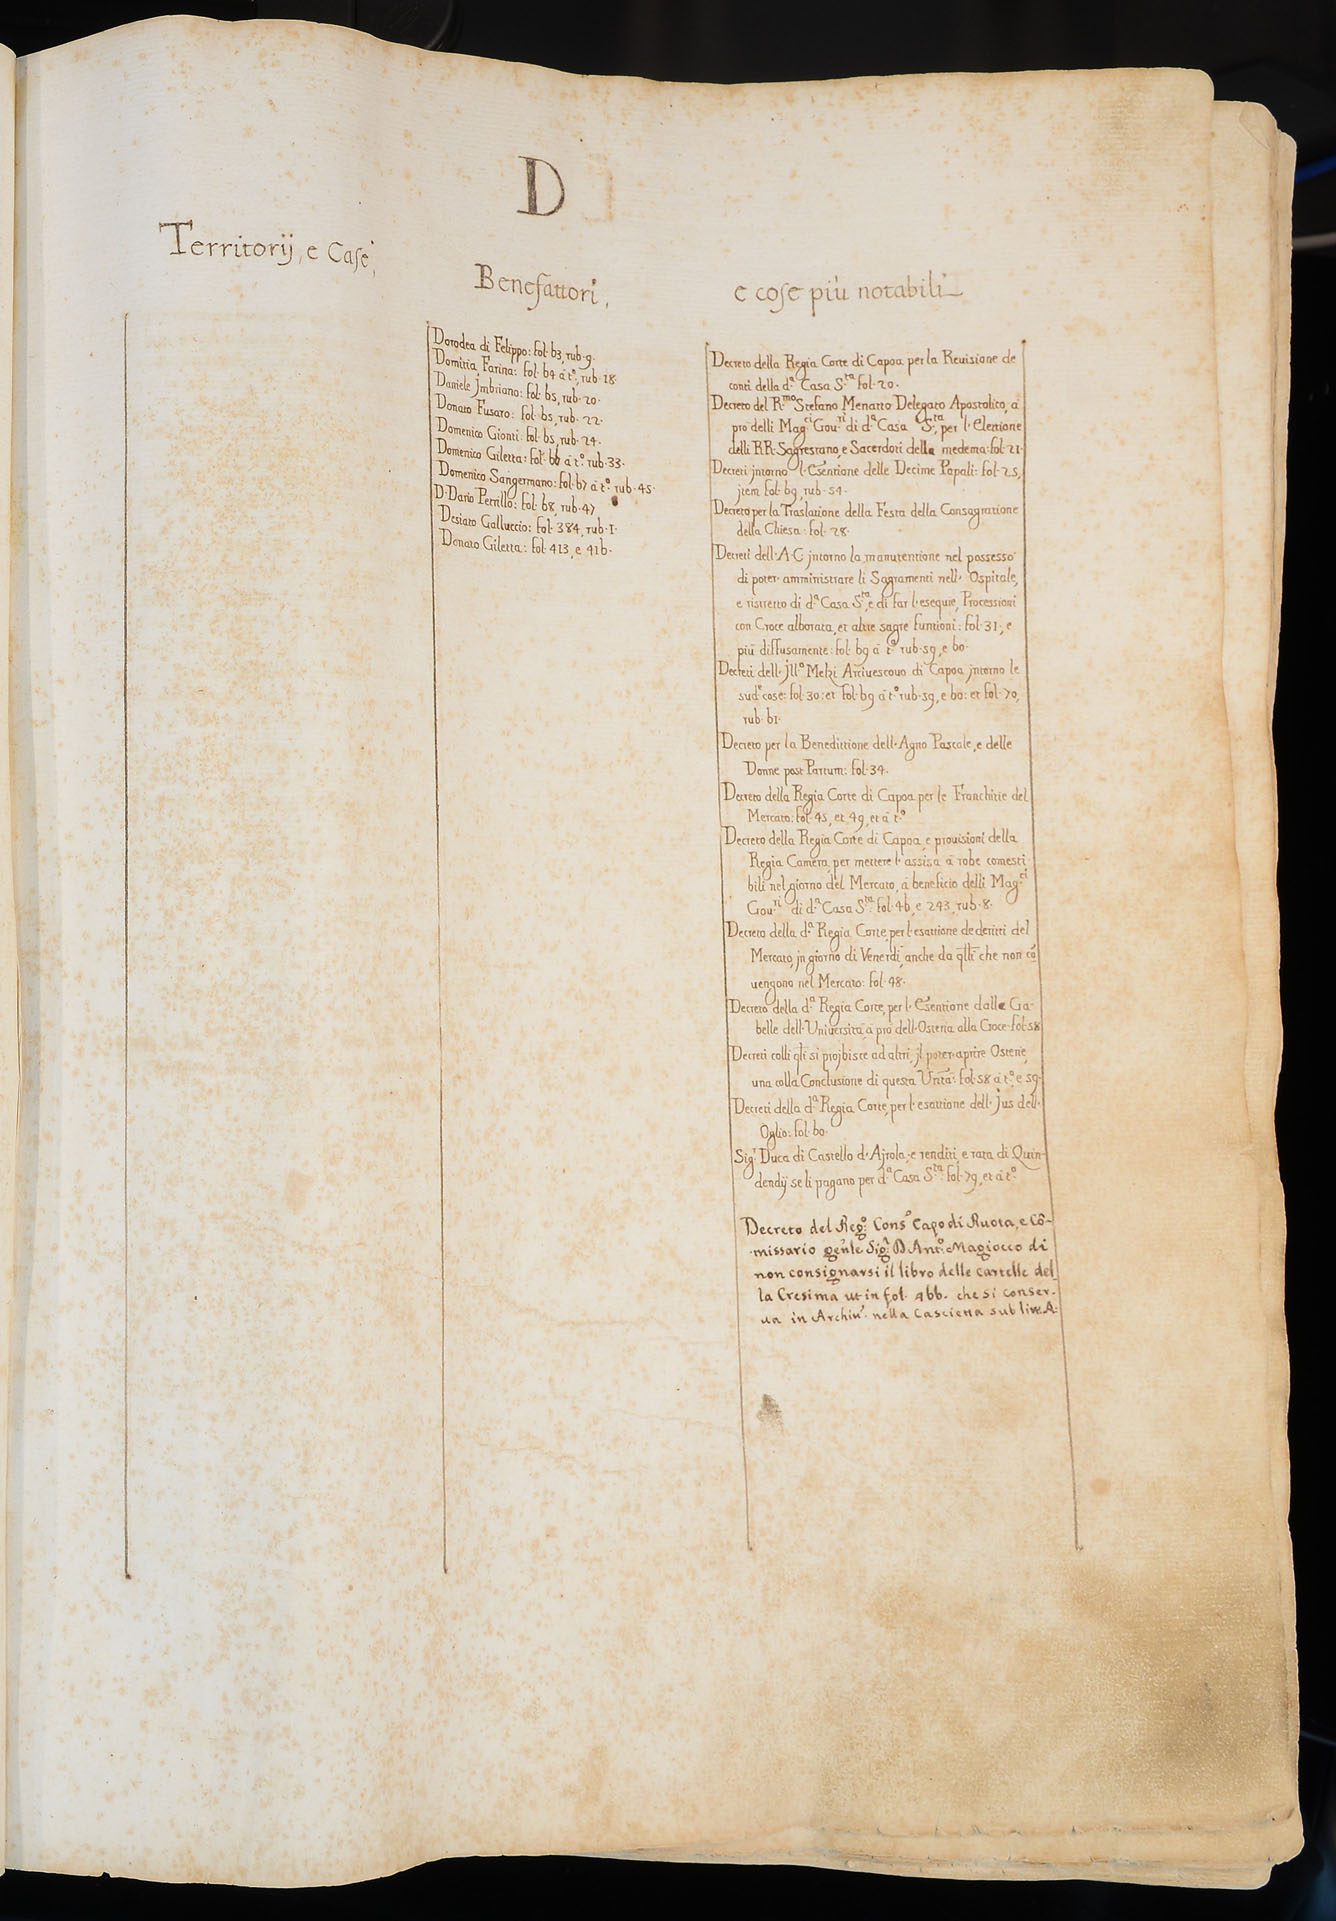 D
Territorij, e Case,
Benefattori,
e cose più notabili
Dorodea di Felippo: fol. 63, rub. 9.
Domitia Farina: fol. 64 à t.º, rub. 18.
Daniele Jmbriano: fol. 65, rub. 20.
Donato Fusaro: fol. 65, rub. 22.
Domenico Gionti: fol. 65, rub. 24.
Domenico Giletta: fol. 66 à t.º rub. 33.
Domenico Sangermano: fol. 67 à t.º rub. 45.
D. Dario Petrillo: fol. 68, rub. 47
Desiato Galluccio: fol. 384, rub. 1.
Donato Giletta: fol. 413, e 416.
Decreto della Regia Corte di Capoa per la Reuisione de
conti della d.ª Casa S.ta fol. 20.
Decreto del R.mo Stefano Menatto Delegato Apostolico, à
prò delli Mag.ci Gou.ri di d.ª Casa S.ta, per l'Elettione
delli RR. Sagrestano, e Sacerdoti della medema: fol. 21.
Decreti jntorno l'Esentione delle Decime Papali: fol. 25,
jtem fol. 69, rub. 54.
Decreto per la Traslatione della Festa della Consagratione
della Chiesa: fol. 28.
Decreti dell'A.C. jntorno la manutentione nel possesso
di poter amministrare li Sagramenti nell'Ospitale,
e ristretto di d.ª Casa S.ta, e di far l'esequie, Processioni
con Croce alborata, et altre sagre funtioni: fol. 31, e
più diffusamente: fol. 69 à t.º rub. 59, e 60.
Decreti dell'Jll.º Melzi Arciuescouo di Capoa jntorno le
sud.e cose: fol. 30: et fol. 69 à t.º rub. 59, e 60: et fol. 70,
rub. 61.
Decreto per la Benedittione dell'Agno Pascale, e delle
Donne post Partum: fol. 34.
Decreto della Regia Corte di Capoa per le Franchitie del
Mercato: fol. 45, et 49, et à t.º
Decreto della Regia Corte di Capoa, e prouisioni della
Regia Camera, per mettere l'assisa à robe comesti
bili nel giorno del Mercato, à beneficio delli Mag.ci
Gou.ri di d.ª Casa S.ta: fol. 46, e 243, rub. 8.
Decreto della d.ª Regia Corte, per l'esattione de deritti del
Mercato, jn giorno di Venerdì, anche da q̃lli che non cõ
uengono nel Mercato: fol. 48.
Decreto della d.ª Regia Corte, per l'Esentione dalle Ga-
belle dell'Uniuersità, à prò dell'Osteria alla Croce. fol. 58
Decreti colli q̃li si projbisce ad altri, jl poter aprire Osterie,
una colla Conclusione di questa Unità: fol. 58 à t.º e 59.
Decreti della d.ª Regia Corte, per l'esattione dell'jus dell'
Oglio: fol. 60.
Sig.r Duca di Castello d'Ajrola, e renditi, e rata di Quin-
dendij se li pagano per d.ª Casa S.ta: fol. 79, et à t.º
Decreto del Reg.º Cons.º Capo di Ruota, e Cõ-
missario gẽnle Sig.r D Ant.º Magiocco di
non consignarsi il libro delle cartelle del
la Cresima ut in fol. 466. che si conser-
ua in Archiu.º nella Cascietta sub litt. A.